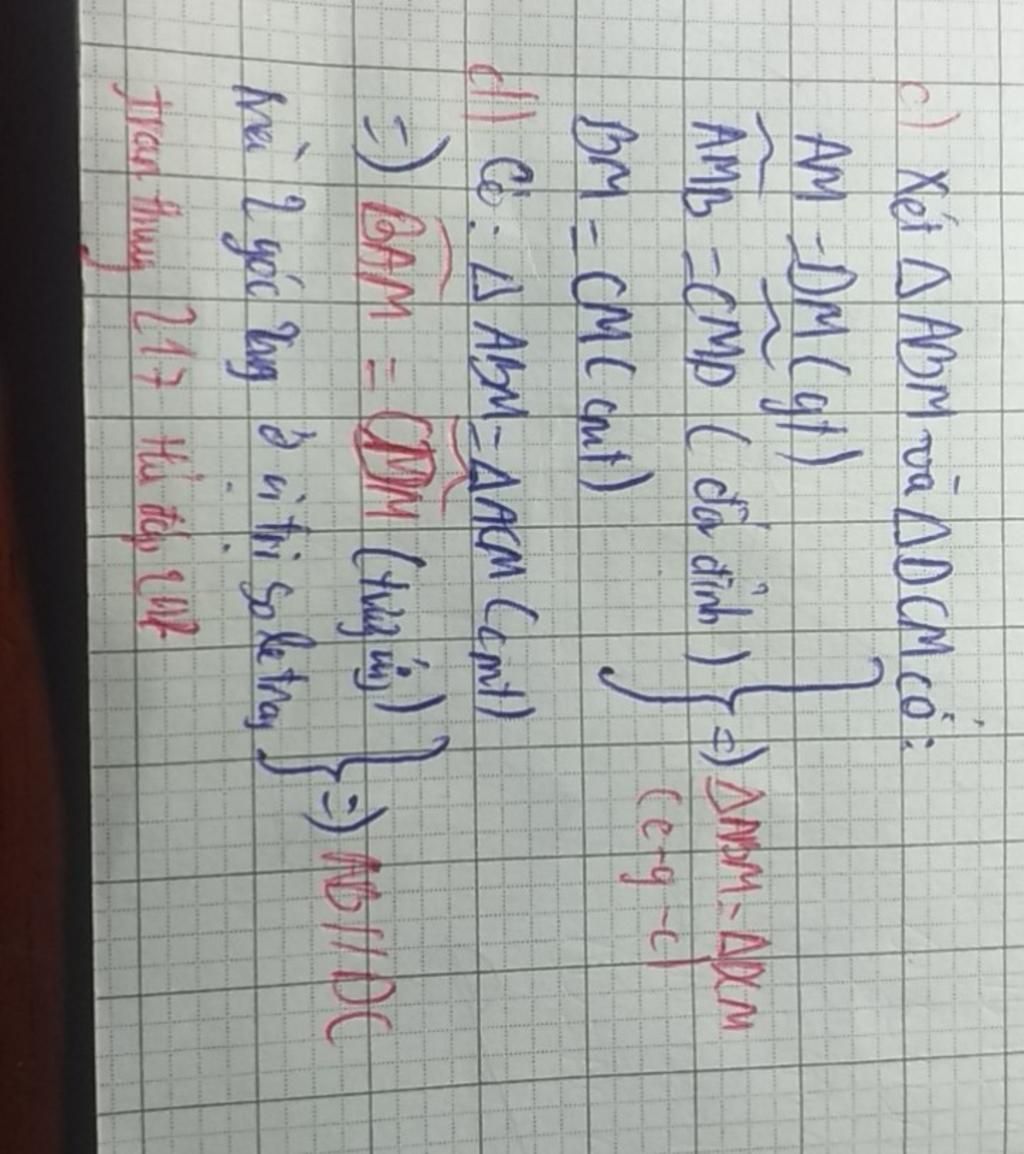 c) Xét Δ ABM và Δ DCM có:
AM = DM (gt)
AMB = CMD (đối đỉnh) } => ΔABM = ΔDCM
BM = CM (cmt) (c-g-c)
d) Có: Δ ABM = Δ ACM (cmt)
=> BAM = CDM (tương ứng)
Mà 2 góc ở vị trí so le trong } => AB // DC
Tranthuy 217